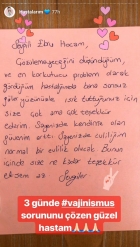 Hastalarım 77h
Sayın Ebru Hocam,
Gözlemeyeceğini düşündüğüm,
ve en korkutucu problem olarak
gördüğüm hastalığımda bana sonsuz
güler yüzünüzle ışık tuttuğunuz için
size çok ama çok teşekkür
ederim. Sayenizde kendime olan
güvenim arttı. Sayenizde evliliğim
normal bir evlilik olacak. Bunun
içinde size ne kadar teşekkür
etsem az.
Saygılar
3 günde #vajinismus
sorununu çözen güzel
hastam